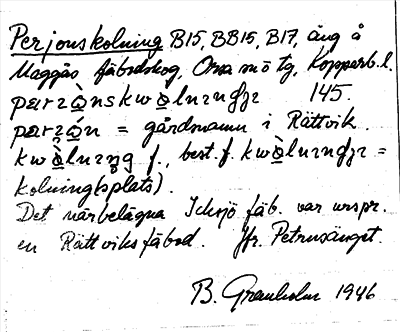 Perjonskolning B15, BB15, B17, äng å
Maggås fäbodskog, Orsa sn ö tg, Kopparb. l.
pærzɷ̀nskwɷ̀lnɪnɡjɪ 145.
pærzɷ́n = gårdsnamn i Rättvik.
kwɷ̀lnɪŋg f., best. f. kwɷ̀lnɪnɡjɪ =
kolning(splats).
Det närbelägna Icksjö fäb. var urspr.
en Rättviksfäbod. Jfr. Petrusänget.
B. Granholm 1946